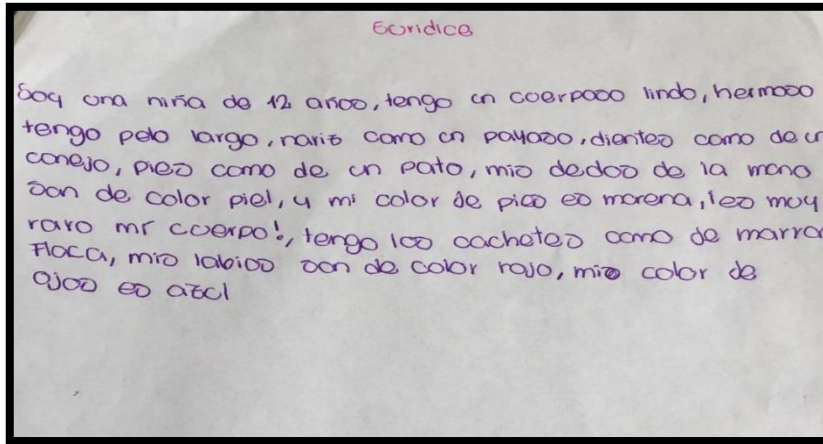 Euridice
Soy una niña de 12 años, tengo un cuerpaso lindo, hermoso
tengo pelo largo, nariz como un payaso, dientes como de un
conejo, pies como de un pato, mis dedos de la mano
son de color piel, y mi color de piso es morena, ¡es muy
raro mi cuerpo!, tengo los cachetes como de marra
flaca, mis labios son de color rojo, mis color de
ojos es azul